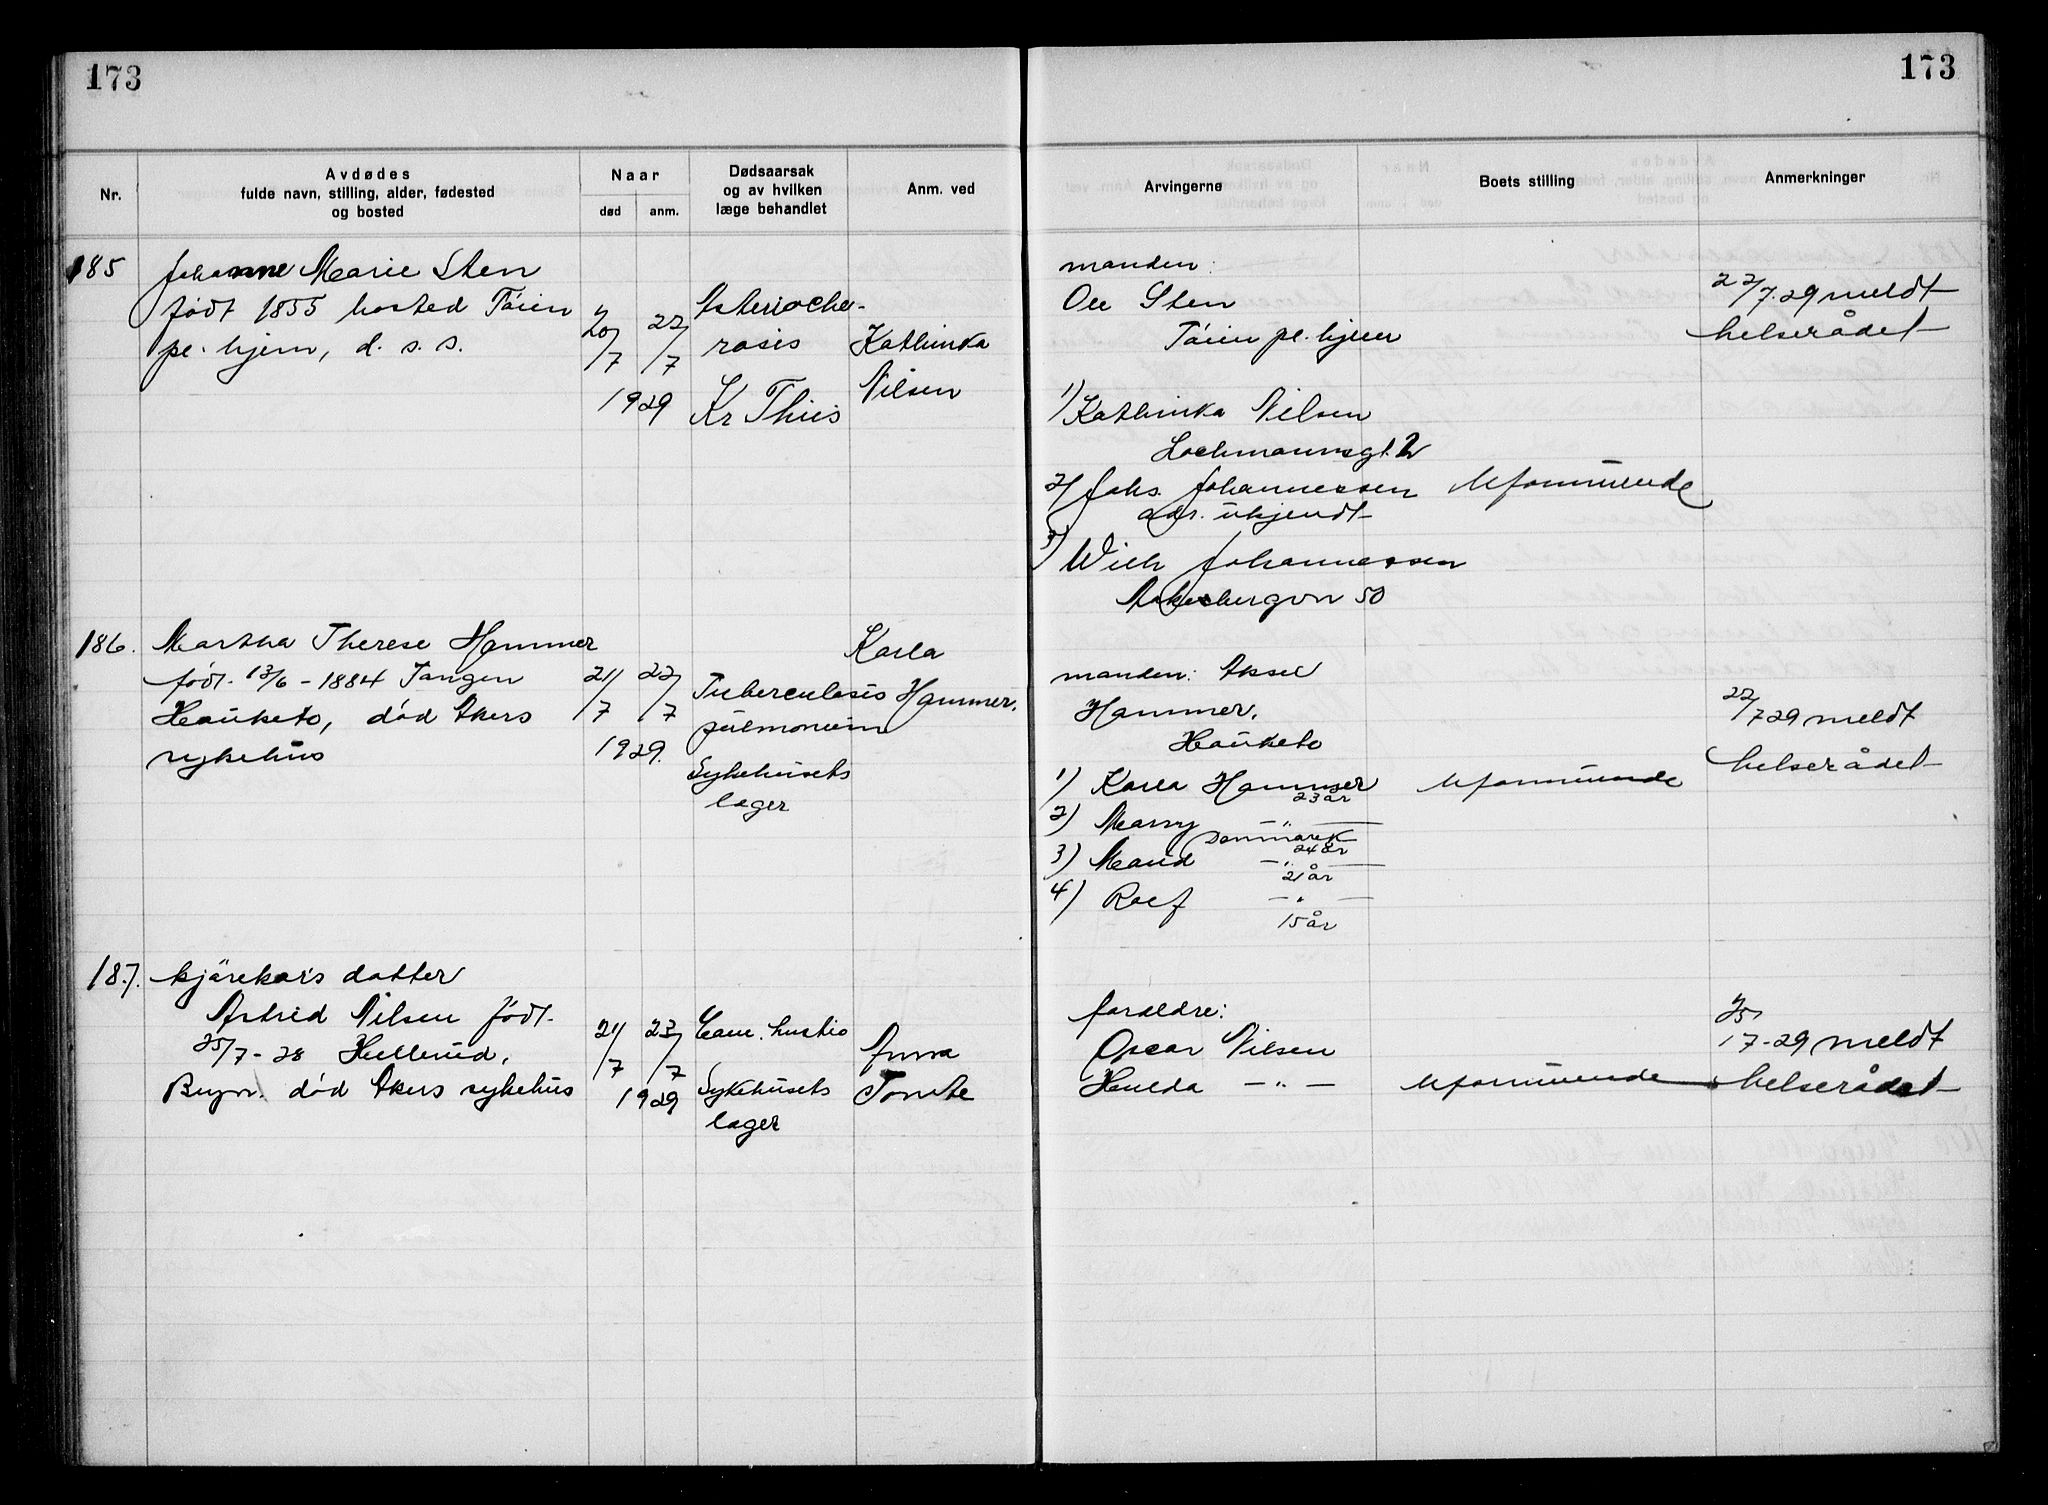 173
173
Nr.
Avdødes
fulde navn, stilling, alder, fødested
og bosted
Naar
død
anm.
Dødsaarsak
og av hvilken
læge behandlet
Anm. ved
Arvingerne
Boets stilling
Anmerkninger
185
Johanne Marie Sten
født 1855 bosted Töien
pl. hjem, d. s. s.
20/7
22/7
1929
rosis
Kr Thiis
Kathinka
Nilsen
manden:
Ole Sten
Töien pl. hjem
1) Kathinka Nilsen
Lochmannsgt. 2
2) Johs. Johannessen
adr. ukjendt
3) Wilh Johannessen
Akebergvn 50
Uformuende
22/7.29 meldt
helserådet
186.
Martha Therese Hammer
født 13/6 - 1884 Tangen
Hauketo, död Akers
sykehus
21/7
22/7
1929.
Tuberculosis
pulmonum
Sykehusets
læger
Karla
Hammer.
manden: Aksel
Hammer.
Hauketo
1) Karla Hammer
23 år
2) Marry — " —
Danmark
24 år
3) Maud — " —
21 år
4) Rolf — " —
15 år
Uformuende
22/7 29 meldt
helserådet
187.
kjörekars datter
Astrid Nilsen födt
25/7 - 28 Hellerud,
Bryn. död Akers sykehus
21/7
23/7
1929
Sykehusets
læger
Anna
Tomte
foreldre:
Oscar Nilsen
Hulda — " —
Uformuende
25/7-29 meldt
helserådet